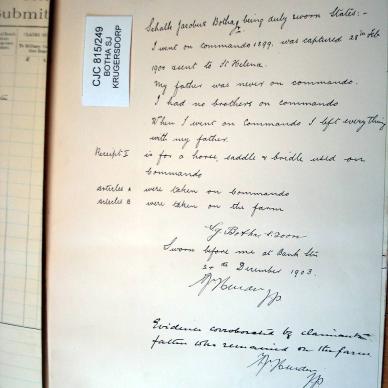 Submit
CJC 815/249
BOTHA SJ
KRUGERSDORP
Schalk Jacobus Botha, being duly sworn States:-
I went on commando 1899, was captured 28th Feb
1900 & sent to St Helena.
My father was never on commando.
I had no brothers on commando
When I went on Commando I left everything
with my father.
Receipt I is for a horse, saddle & bridle used on
Commando
articles A were taken on Commando
articles B were taken on the farm
Sg. Botha
Sworn before me at Bank Stn
24th December 1903.
JP
Evidence corroborated by claimants
father who remained on the farm
JP